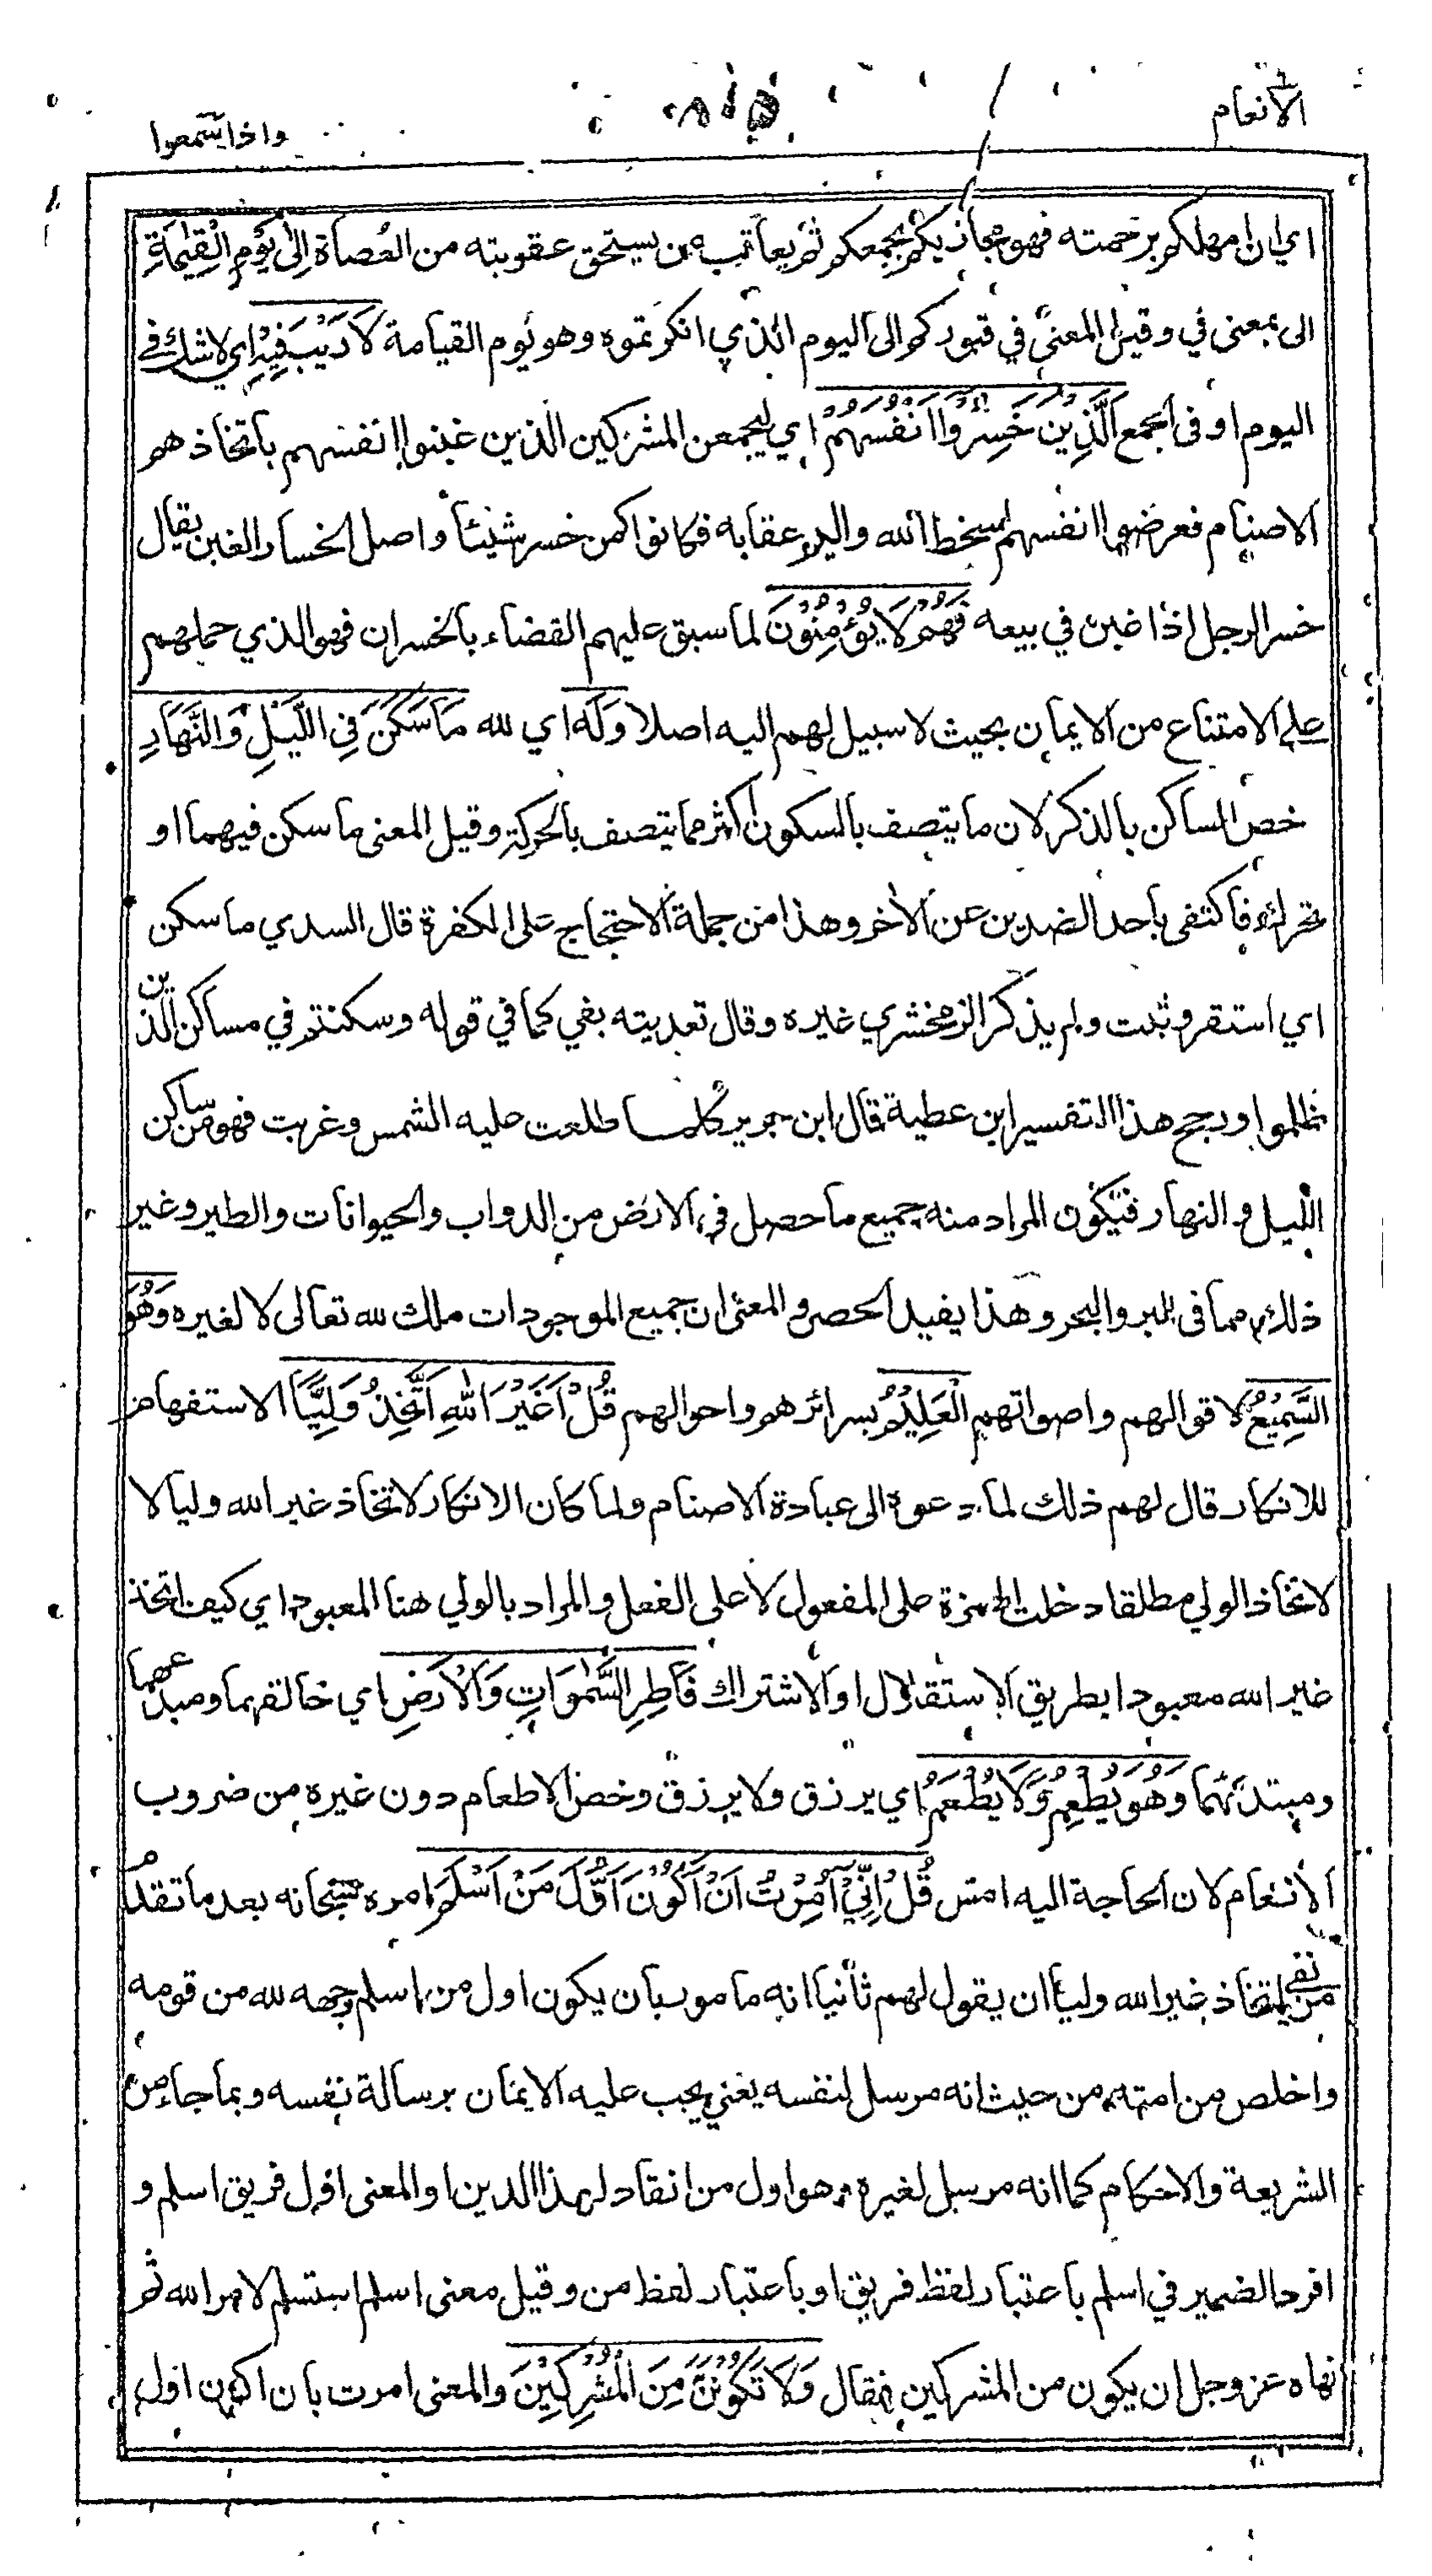 الانعام
واذا سمعوا
اي ان امهلكم برحمته فهو مجازيكم بجمعكم ثم يعاقب من يستحق عقوبته من العُصاة اِلىٰ يَوْمِ الْقِيٰمَةِ
الى بمعنى في وقيل المعنى في قبوركم الى اليوم الذي انكرتموه وهو يوم القيامة لَا رَيْبَ فِيْهِ اي لا شك في
اليوم او في الجمع اَلَّذِيْنَ خَسِرُوْا اَنْفُسَهُمْ اي ليجمعن المشركين الذين غبنوا انفسهم باتخاذهم
الاصنام فعرضوا انفسهم لسخط الله واليم عقابه فكانوا كمن خسر شيئا واصل الخسار الغبن يقال
خسر الرجل اذا غبن في بيعه فَهُمْ لَا يُؤْمِنُوْنَ لما سبق عليهم القضاء بالخسران فهو الذي حملهم
على الامتناع من الايمان بحيث لا سبيل لهم اليه اصلا وَلَهٗ اي لله مَا سَكَنَ فِي اللَّيْلِ وَالنَّهَارِ
خص الساكن بالذكر لان ما يتصف بالسكون اكثر مما يتصف بالحركة وقيل المعنى ما سكن فيهما او
تحرك فاكتفى باحد الضدين عن الاخر وهذا من جملة الاحتجاج على الكفرة قال السدي ما سكن
اي استقر وثبت ولم يذكر الزمخشري غيره وقال تعديته بفي كما في قوله وسكنتم في مساكن الذين
ظلموا ورجح هذا التفسير ابن عطية قال ابن جرير كلما طلعت عليه الشمس وغربت فهو من ساكن
الليل والنهار فيكون المراد منه جميع ما حصل في الارض من الدواب والحيوانات والطير وغير
ذلك مما في البر والبحر وهذا يفيد الحصر والمعنى ان جميع الموجودات ملك لله تعالى لا لغيره وَهُوَ
السَّمِيْعُ لاقوالهم واصواتهم الْعَلِيْمُ بسرائرهم واحوالهم قُلْ اَغَيْرَ اللهِ اَتَّخِذُ وَلِيًّا الاستفهام
للانكار قال لهم ذلك لما دعوه الى عبادة الاصنام ولما كان الانكار لاتخاذ غير الله وليا لا
لاتخاذ الولي مطلقا دخلت الهمزة على المفعول لا على الفعل والمراد بالولي هنا المعبود اي كيف اتخذ
غير الله معبودا بطريق الاستقلال او الاشتراك فَاطِرِ السَّمٰوَاتِ وَالْاَرْضِ اي خالقهما ومبدعهما
ومبتدئهما وَهُوَ يُطْعِمُ وَلَا يُطْعَمُ اي يرزق ولا يرزق وخص الاطعام دون غيره من ضروب
الانعام لان الحاجة اليه امس قُلْ اِنِّيْ اُمِرْتُ اَنْ اَكُوْنَ اَوَّلَ مَنْ اَسْلَمَ امره سبحانه بعد ما تقدم
من نفي اتخاذ غير الله وليا ان يقول لهم ثانيا انه مامور بان يكون اول من اسلم وجهه لله من قومه
واخلص من امته من حيث انه مرسل لنفسه يعني يجب عليه الايمان برسالة نفسه وبما جاء من
الشريعة والاحكام كما انه مرسل لغيره وهو اول من انقاد لهذا الدين او المعنى اول فريق اسلم و
افرد الضمير في اسلم باعتبار لفظ فريق او باعتبار لفظ من وقيل معنى اسلم استسلم لامر الله ثم
نهاه عز وجل ان يكون من المشركين فقال وَلَا تَكُوْنَنَّ مِنَ الْمُشْرِكِيْنَ والمعنى امرت بان اكون اول